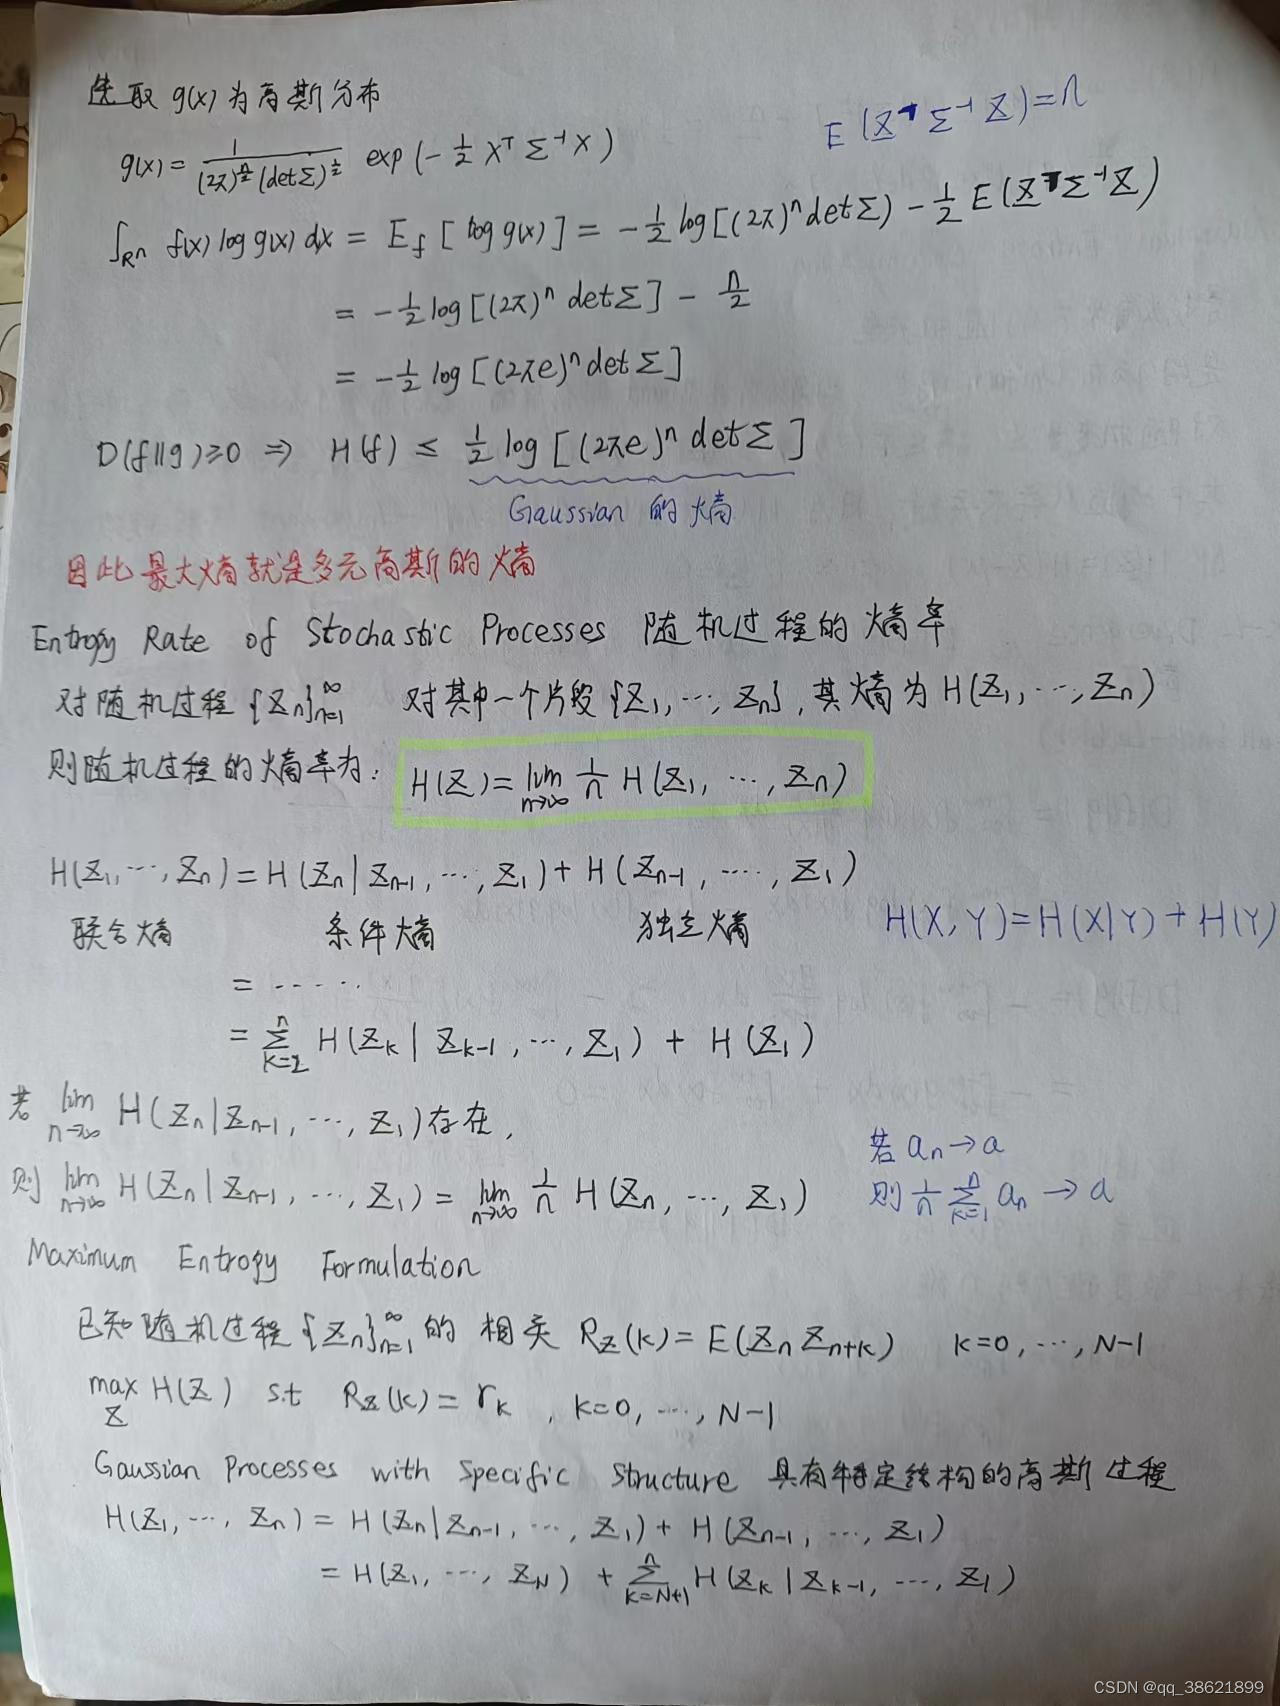 选取 g(x)为高斯分布
E(Z^T Σ^-1 Z)=n
g(x)= 1/((2π)^(n/2) (detΣ)^(1/2)) exp(-1/2 X^T Σ^-1 X)
∫_R^n f(x) log g(x) dx = E_f [log g(x)] = -1/2 log[(2π)^n detΣ) - 1/2 E(Z^T Σ^-1 Z)
= -1/2 log[(2π)^n detΣ] - n/2
= -1/2 log[(2πe)^n detΣ]
D(f||g)≥0 ⇒ H(f) ≤ 1/2 log[(2πe)^n detΣ]
Gaussian 的熵
因此最大熵就是多元高斯的熵
Entropy Rate of Stochastic Processes 随机过程的熵率
对随机过程{Zn}_{n=1}^∞ 对其中一个片段{Z1, ..., Zn}, 其熵为H(Z1, ..., Zn)
则随机过程的熵率为: H(Z)= lim_{n→∞} 1/n H(Z1, ..., Zn)
H(Z1, ..., Zn) = H(Zn|Zn-1, ..., Z1) + H(Zn-1, ..., Z1)
联合熵 条件熵 独立熵
H(X,Y)=H(X|Y)+H(Y)
= ......
= Σ_{k=2}^n H(Zk | Zk-1, ..., Z1) + H(Z1)
若 lim_{n→∞} H(Zn|Zn-1, ..., Z1)存在,
若 an→a
则 lim_{n→∞} H(Zn|Zn-1, ..., Z1) = lim_{n→∞} 1/n H(Zn, ..., Z1)
则 1/n Σ_{k=1}^n an → a
Maximum Entropy Formulation
已知随机过程{Zn}_{n=1}^∞的相关 Rz(k)=E(Zn Zn+k) k=0, ..., N-1
max_Z H(Z) s.t Rz(k)=rk, k=0, ..., N-1
Gaussian Processes with Specific Structure 具有特定结构的高斯过程
H(Z1, ..., Zn) = H(Zn|Zn-1, ..., Z1) + H(Zn-1, ..., Z1)
= H(Z1, ..., ZN) + Σ_{k=N+1}^n H(Zk|Zk-1, ..., Z1)
CSDN @qq_38621899